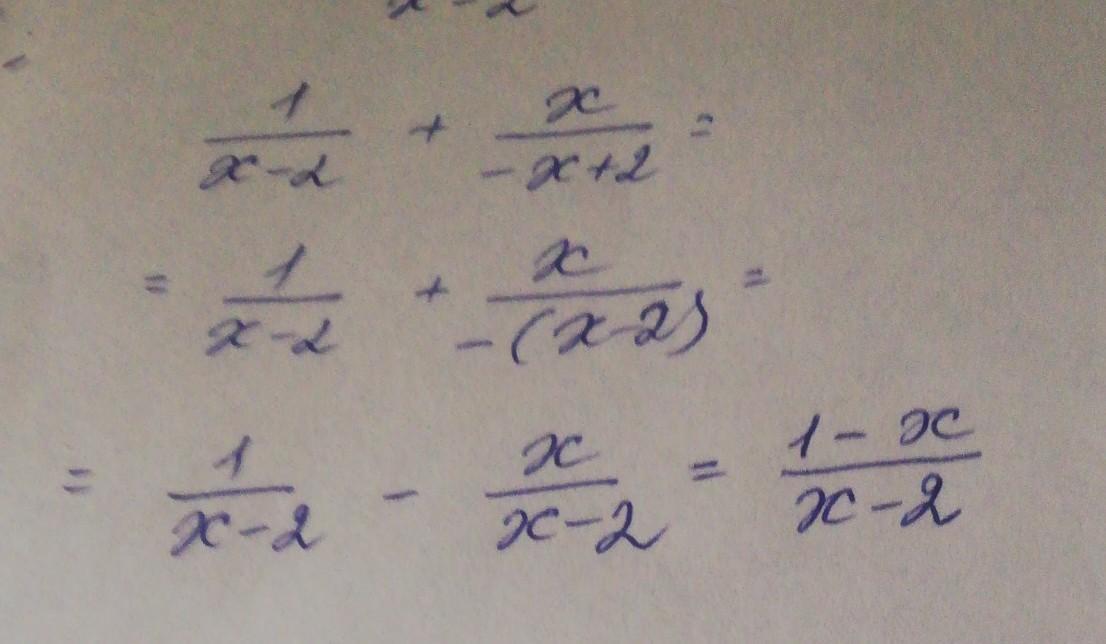 x-2
1/(x-2) + x/(-x+2) =
= 1/(x-2) + x/(-(x-2)) =
= 1/(x-2) - x/(x-2) = (1-x)/(x-2)